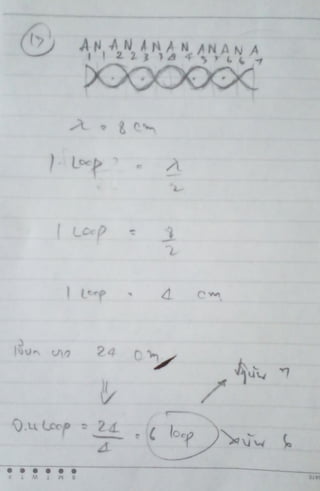 17
A N A N A N A N A N A N A
1 1 2 2 3 3 4 4 5 5 6 6 7
λ = 8 cm
1 Loop = λ/2
1 Loop = 8/2
1 Loop = 4 cm
เชือก ยาว 24 cm
ปฏิบัพ 7
จ.น Loop = 24/4 = 6 loop
บัพ 6